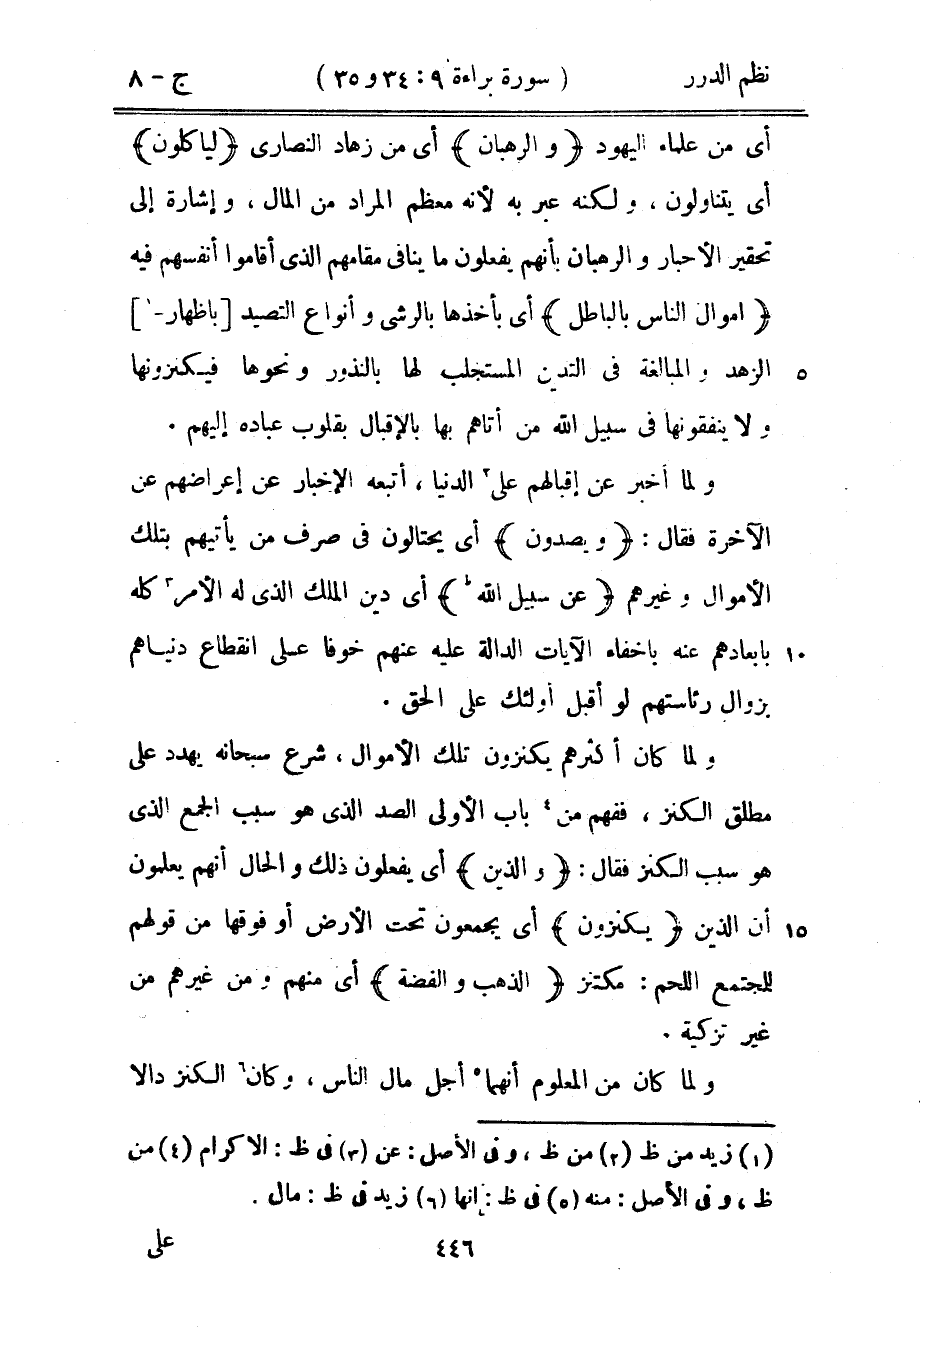 نظم الدرر ( سورة براءة ٩ : ٣٤ و ٣٥ ) ج - ٨
أى من علماء اليهود ﴿ و الرهبان ﴾ أى من زهاد النصارى ﴿ لياكلون ﴾
أى يتناولون ، و لكنه عبر به لأنه معظم المراد من المال ، و إشارة إلى
تحقير الأحبار و الرهبان بأنهم يفعلون ما ينافى مقامهم الذى أقاموا أنفسهم فيه
﴿ اموال الناس بالباطل ﴾ أى بأخذها بالرشى و أنواع التصيد [ باظهار-١ ]
٥ الزهد و المبالغة فى التدين المستجلب لها بالنذور و نحوها فيكنزونها
و لا ينفقونها فى سبيل الله من أتاهم بها بالإقبال بقلوب عباده إليهم .
و لما أخبر عن إقبالهم على٢ الدنيا ، أتبعه الإخبار عن إعراضهم عن
الآخرة فقال : ﴿ و يصدون ﴾ أى يحتالون فى صرف من يأتيهم بتلك
الأموال و غيرهم ﴿ عن سبيل الله ط ﴾ أى دين الملك الذى له الأمر٣ كله
١٠ بابعادهم عنه باخفاء الآيات الدالة عليه عنهم خوفا على انقطاع دنياهم
بزوال رئاستهم لو أقبل أولئك على الحق .
و لما كان أكثرهم يكنزون تلك الأموال ، شرع سبحانه يهدد على
مطلق الكنز ، ففهم من٤ باب الأولى الصد الذى هو سبب الجمع الذى
هو سبب الكنز فقال : ﴿ و الذين ﴾ أى يفعلون ذلك و الحال أنهم يعلمون
١٥ أن الذين ﴿ يكنزون ﴾ أى يجمعون تحت الأرض أو فوقها من قولهم
للجتمع اللحم : مكتنز ﴿ الذهب و الفضة ﴾ أى منهم و من غيرهم من
غير تزكية .
و لما كان من المعلوم أنهما٥ أجل مال الناس ، و كان٦ الكنز دالا
(١) زيد من ظ (٢) من ظ ، و فى الأصل : عن (٣) فى ظ : الاكرام (٤) من
ظ ، و فى الأصل : منه (٥) فى ظ : انها (٦) زيد فى ظ : مال .
٤٤٦ على